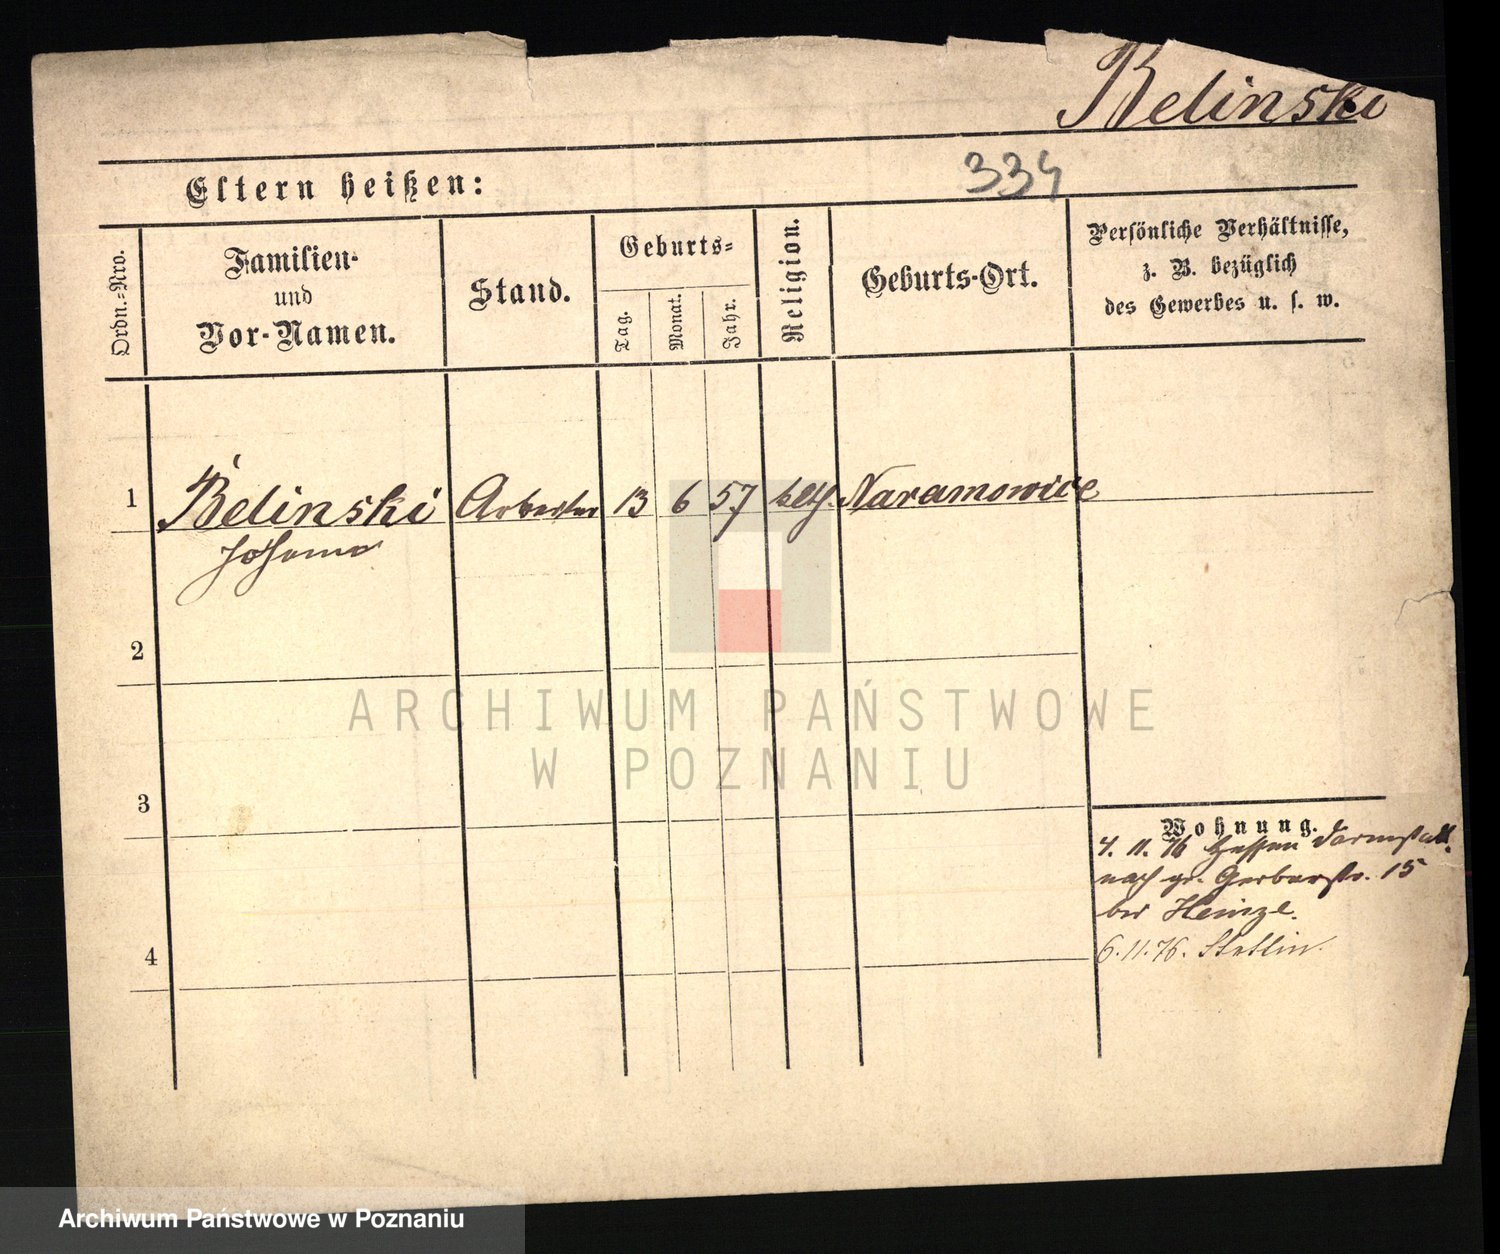 Belinski
334
Eltern heißen:
Ordn.-Nro.
Familien-
und
Vor-Namen.
Stand.
Geburts-
Tag.
Monat.
Jahr.
Religion.
Geburts-Ort.
Persönliche Verhältnisse,
z. B. bezüglich
des Gewerbes u. s. w.
1
Belinski Arbeiter 13 6 57 kath. Naramowice
Johann
2
3
4
Wohnung.
4. 11. 76 Hessen Darmstadt
nach gr. Gerberstr. 15
bei Heinze.
6. 11. 76. Stettin.
ARCHIWUM PAŃSTWOWE
W POZNANIU
Archiwum Państwowe w Poznaniu